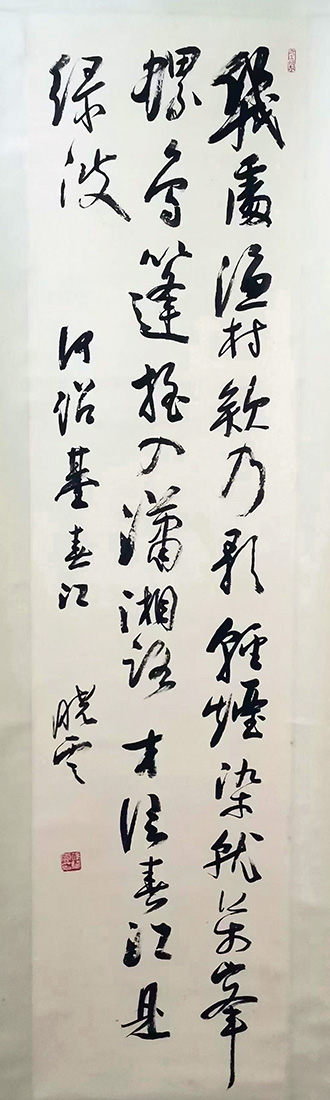 幾處漁村欸乃歌輕煙染就萬峯
螺烏篷搖入瀟湘路才信春江是
綠波 何紹基春江 曉雲